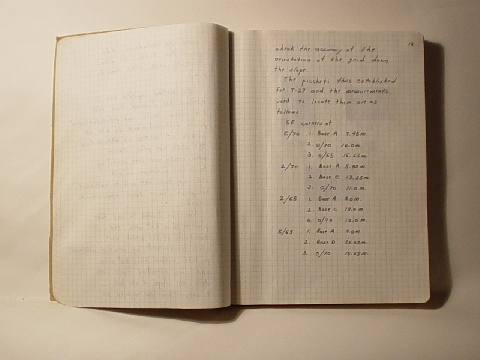 18
check the accuracy of the
orientation of the grid down
the slope.
The pickets thus established
for T-27 and the measurements
used to locate them are as
follows:
SE corner of
5/70 1. Base A 7.45m.
2. 0/70 10.0m
3. 0/65 15.25m
2/70 1. Base A 5.80m.
2. Base C 13.25m
3. 0/70 11.0m
2/65 1. Base A 8.0m.
2. Base C 12.0m.
3. 0/70 12.0m.
5/65 1. Base A 9.0m
2. Base D
3. 0/70